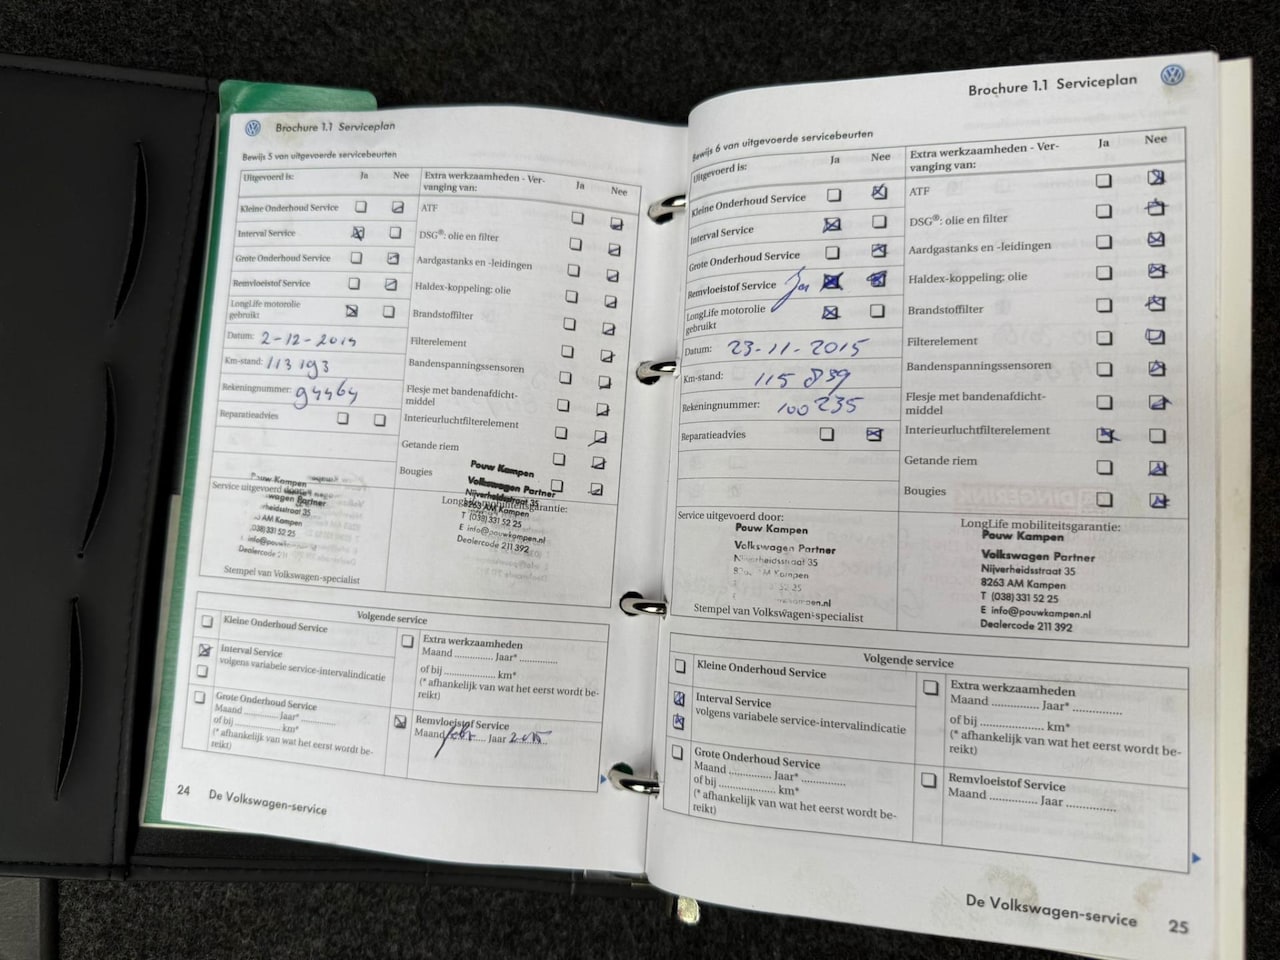 Brochure 1.1 Serviceplan
Bewijs 5 van uitgevoerde servicebeurten
Uitgevoerd is: Ja Nee
Kleine Onderhoud Service
Interval Service
Grote Onderhoud Service
Remvloeistof Service
LongLife motorolie
gebruikt
Datum: 2-12-2014
Km-stand: 113 193
Rekeningnummer: 94464
Reparatieadvies
Extra werkzaamheden - Ver-
vanging van: Ja Nee
ATF
DSG®: olie en filter
Aardgastanks en -leidingen
Haldex-koppeling: olie
Brandstoffilter
Filterelement
Bandenspanningssensoren
Flesje met bandenafdicht-
middel
Interieurluchtfilterelement
Getande riem
Bougies
Service uitgevoerd door:
Pouw Kampen
wagen Partner
straat 35
AM Kampen
(038)331 52 25
info@pouw
Dealercode 211
Stempel van Volkswagen-specialist
LongLife mobiliteitsgarantie:
Pouw Kampen
Volkswagen Partner
Nijverheidsstraat 35
8263 AM Kampen
T (038)331 52 25
E info@pouwkampen.nl
Dealercode 211 392
Volgende service
Kleine Onderhoud Service
Interval Service
volgens variabele service-intervalindicatie
Grote Onderhoud Service
Maand .............. Jaar* ..............
of bij .............. km*
(* afhankelijk van wat het eerst wordt be-
reikt)
Extra werkzaamheden
Maand .............. Jaar* ..............
of bij .............. km*
(* afhankelijk van wat het eerst wordt be-
reikt)
Remvloeistof Service
Maand febr Jaar 2015
24 De Volkswagen-service
Brochure 1.1 Serviceplan
Bewijs 6 van uitgevoerde servicebeurten
Uitgevoerd is: Ja Nee
Kleine Onderhoud Service
Interval Service
Grote Onderhoud Service
Remvloeistof Service Ja
LongLife motorolie
gebruikt
Datum: 23-11-2015
Km-stand: 115 839
Rekeningnummer: 100235
Reparatieadvies
Extra werkzaamheden - Ver-
vanging van: Ja Nee
ATF
DSG®: olie en filter
Aardgastanks en -leidingen
Haldex-koppeling: olie
Brandstoffilter
Filterelement
Bandenspanningssensoren
Flesje met bandenafdicht-
middel
Interieurluchtfilterelement
Getande riem
Bougies
Service uitgevoerd door:
Pouw Kampen
Volkswagen Partner
Nijverheidsstraat 35
Kampen
52 25
kampen.nl
Stempel van Volkswagen-specialist
LongLife mobiliteitsgarantie:
Pouw Kampen
Volkswagen Partner
Nijverheidsstraat 35
8263 AM Kampen
T (038)331 52 25
E info@pouwkampen.nl
Dealercode 211 392
Volgende service
Kleine Onderhoud Service
Interval Service
volgens variabele service-intervalindicatie
Grote Onderhoud Service
Maand .............. Jaar* ..............
of bij .............. km*
(* afhankelijk van wat het eerst wordt be-
reikt)
Extra werkzaamheden
Maand .............. Jaar* ..............
of bij .............. km*
(* afhankelijk van wat het eerst wordt be-
reikt)
Remvloeistof Service
Maand .............. Jaar ..............
De Volkswagen-service 25